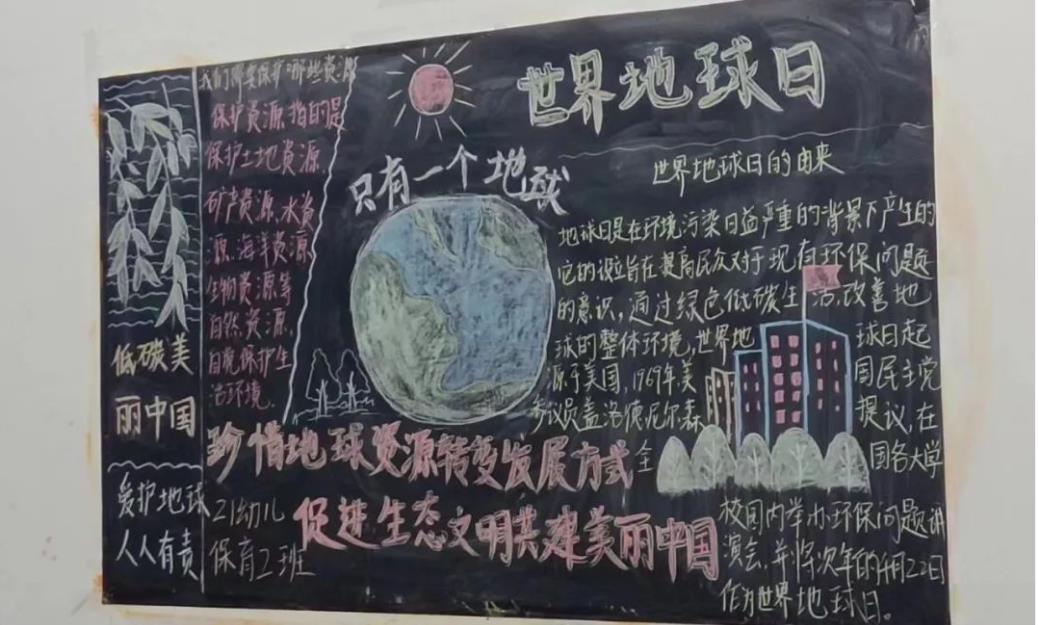 世界地球日
只有一个地球
我们需要保护哪些资源
保护资源,指的是
保护土地资源
矿产资源、水资
源、海洋资源
生物资源等
自然资源,
自觉保护生
活环境.
低碳美
丽中国
爱护地球
人人有责
21幼儿
保育2班
世界地球日的由来
地球日是在环境污染日益严重的背景下产生的
它的设立旨在提高民众对于现有环保问题
的意识,通过绿色低碳生活,改善地
球的整体环境,世界地 球日起
源于美国,1969年美 国民主党
参议员盖洛德尼尔森 提议,在
全 国各大学
校园内举办环保问题讲
演会,并将次年的4月22日
作为世界地球日。
珍惜地球资源转变发展方式
促进生态文明共建美丽中国